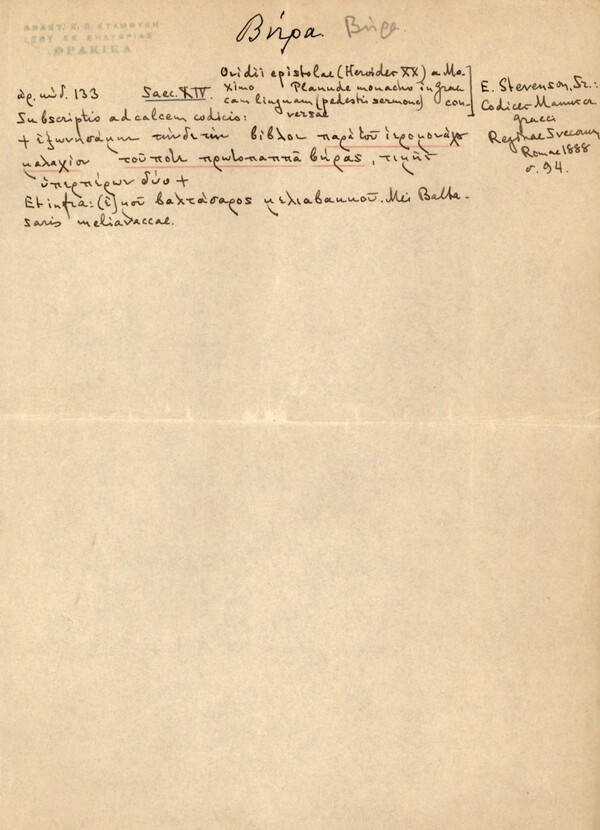 ΑΝΑΣΤ. Κ. Π. ΣΤΑΜΟΥΛΗ
ΤΟΥ ΕΚ ΣΗΛΥΒΡΙΑΣ
ΘΡΑΚΙΚΑ
Βήρα Βήρα.
Ovidii epistolae (Heroides XX) a Ma-
ximo Planude monacho in grae-
cam linguam (pedestri sermone) con-
versae
ἀρ. κώδ. 133 Saec. XIV.
E. Stevenson, Sr.:
Codices Manuscr.
graeci
Reginae Svecorum
Romae 1888
σ. 94.
Subscriptio ad calcem codicis:
+ ἐξωνησάμην τήνδε τὴν βίβλον παρὰ τοῦ ἱερομονάχου
μαλαχίου τοῦ ποτὲ πρωτοπαππᾶ βήρας, τιμῆς
ὑπερπύρων δύο +
Et infra: (ἐ)μοῦ βαλτάσαρος μελιαβακκοῦ. Mei Balta-
saris meliavaccae.